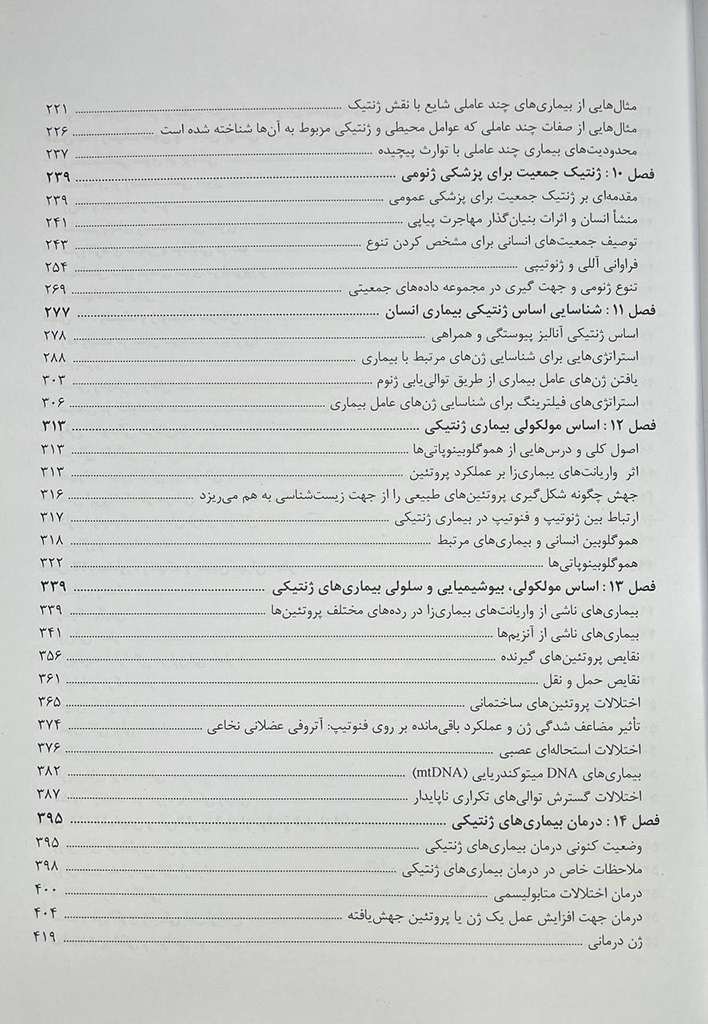 مثال‌هایی از بیماری‌های چند عاملی شایع با نقش ژنتیک ........ ۲۲۱
مثال‌هایی از صفات چند عاملی که عوامل محیطی و ژنتیکی مربوط به آن‌ها شناخته شده است ........ ۲۲۶
محدودیت‌های بیماری چند عاملی با توارث پیچیده ........ ۲۳۷
فصل ۱۰: ژنتیک جمعیت برای پزشکی ژنومی ........ ۲۳۹
مقدمه‌ای بر ژنتیک جمعیت برای پزشکی عمومی ........ ۲۳۹
منشأ انسان و اثرات بنیان‌گذار مهاجرت پیاپی ........ ۲۴۱
توصیف جمعیت‌های انسانی برای مشخص کردن تنوع ........ ۲۴۳
فراوانی آللی و ژنوتیپی ........ ۲۵۴
تنوع ژنومی و جهت گیری در مجموعه داده‌های جمعیتی ........ ۲۶۹
فصل ۱۱: شناسایی اساس ژنتیکی بیماری انسان ........ ۲۷۷
اساس ژنتیکی آنالیز پیوستگی و همراهی ........ ۲۷۸
استراتژی‌هایی برای شناسایی ژن‌های مرتبط با بیماری ........ ۲۸۸
یافتن ژن‌های عامل بیماری از طریق توالی‌یابی ژنوم ........ ۳۰۳
استراتژی‌های فیلترینگ برای شناسایی ژن‌های عامل بیماری ........ ۳۰۶
فصل ۱۲: اساس مولکولی بیماری ژنتیکی ........ ۳۱۳
اصول کلی و درس‌هایی از هموگلوبینوپاتی‌ها ........ ۳۱۳
اثر واریانت‌های بیماری‌زا بر عملکرد پروتئین ........ ۳۱۳
جهش چگونه شکل‌گیری پروتئین‌های طبیعی را از جهت زیست‌شناسی به هم می‌ریزد ........ ۳۱۶
ارتباط بین ژنوتیپ و فنوتیپ در بیماری ژنتیکی ........ ۳۱۷
هموگلوبین انسانی و بیماری‌های مرتبط ........ ۳۱۸
هموگلوبینوپاتی‌ها ........ ۳۲۲
فصل ۱۳: اساس مولکولی، بیوشیمیایی و سلولی بیماری‌های ژنتیکی ........ ۳۳۹
بیماری‌های ناشی از واریانت‌های بیماری‌زا در رده‌های مختلف پروتئین‌ها ........ ۳۳۹
بیماری‌های ناشی از آنزیم‌ها ........ ۳۴۱
نقایص پروتئین‌های گیرنده ........ ۳۵۶
نقایص حمل و نقل ........ ۳۶۱
اختلالات پروتئین‌های ساختمانی ........ ۳۶۵
تأثیر مضاعف شدگی ژن و عملکرد باقی‌مانده بر روی فنوتیپ: آتروفی عضلانی نخاعی ........ ۳۷۴
اختلالات استحاله‌ای عصبی ........ ۳۷۶
بیماری‌های DNA میتوکندریایی (mtDNA) ........ ۳۸۲
اختلالات گسترش توالی‌های تکراری ناپایدار ........ ۳۸۷
فصل ۱۴: درمان بیماری‌های ژنتیکی ........ ۳۹۵
وضعیت کنونی درمان بیماری‌های ژنتیکی ........ ۳۹۵
ملاحظات خاص در درمان بیماری‌های ژنتیکی ........ ۳۹۸
درمان اختلالات متابولیسمی ........ ۴۰۰
درمان جهت افزایش عمل یک ژن یا پروتئین جهش‌یافته ........ ۴۰۴
ژن درمانی ........ ۴۱۹